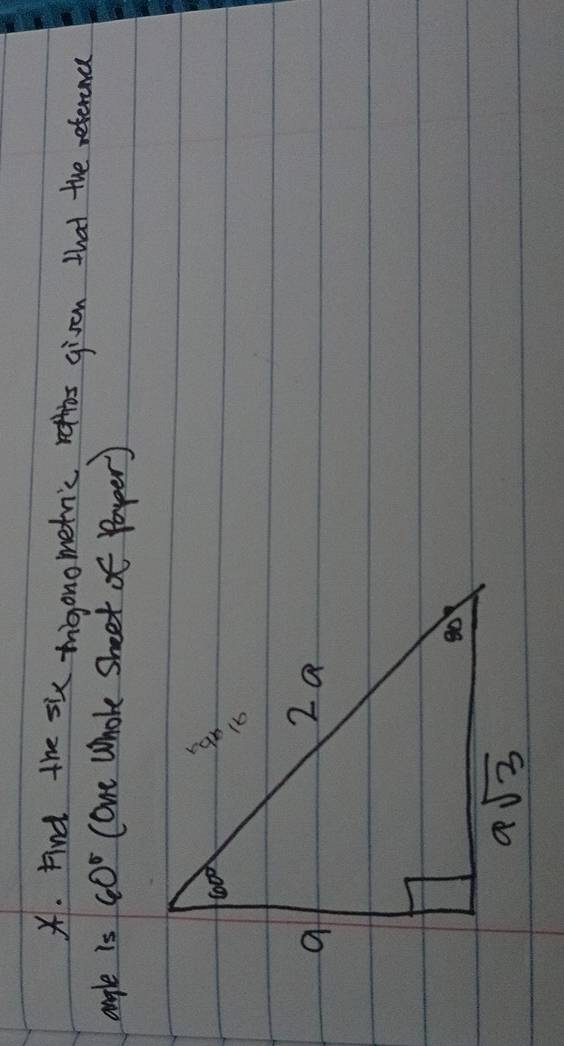 *. Find the six trigonometric ratios given that the reference
angle is 60° (One Whole Sheet of Paper)
60°
2a
a
30
a√3